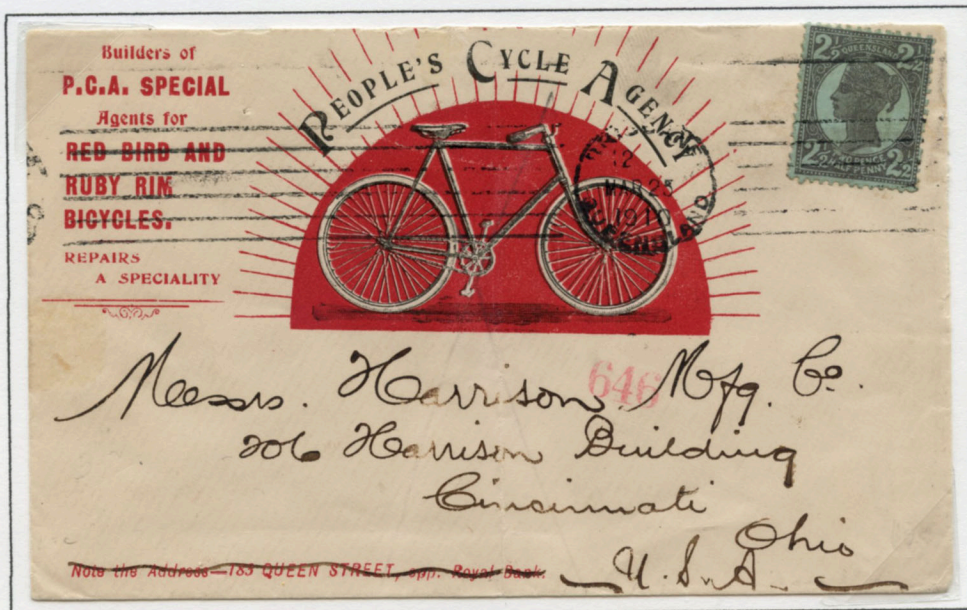 Builders of
P.C.A. SPECIAL
Agents for
RED BIRD AND
RUBY RIM
BICYCLES.
REPAIRS
A SPECIALITY
PEOPLE'S CYCLE AGENCY
2½ QUEENSLAND 2½
2½ TWO PENCE 2½
HALF PENNY
BRISBANE
12
MAR 25
1910
QUEENSLAND
646
Messrs. Harrison Mfg. Co.
206 Harrison Building
Cincinnati
Ohio
U.S.A.
Note the Address—183 QUEEN STREET, opp. Royal Bank.